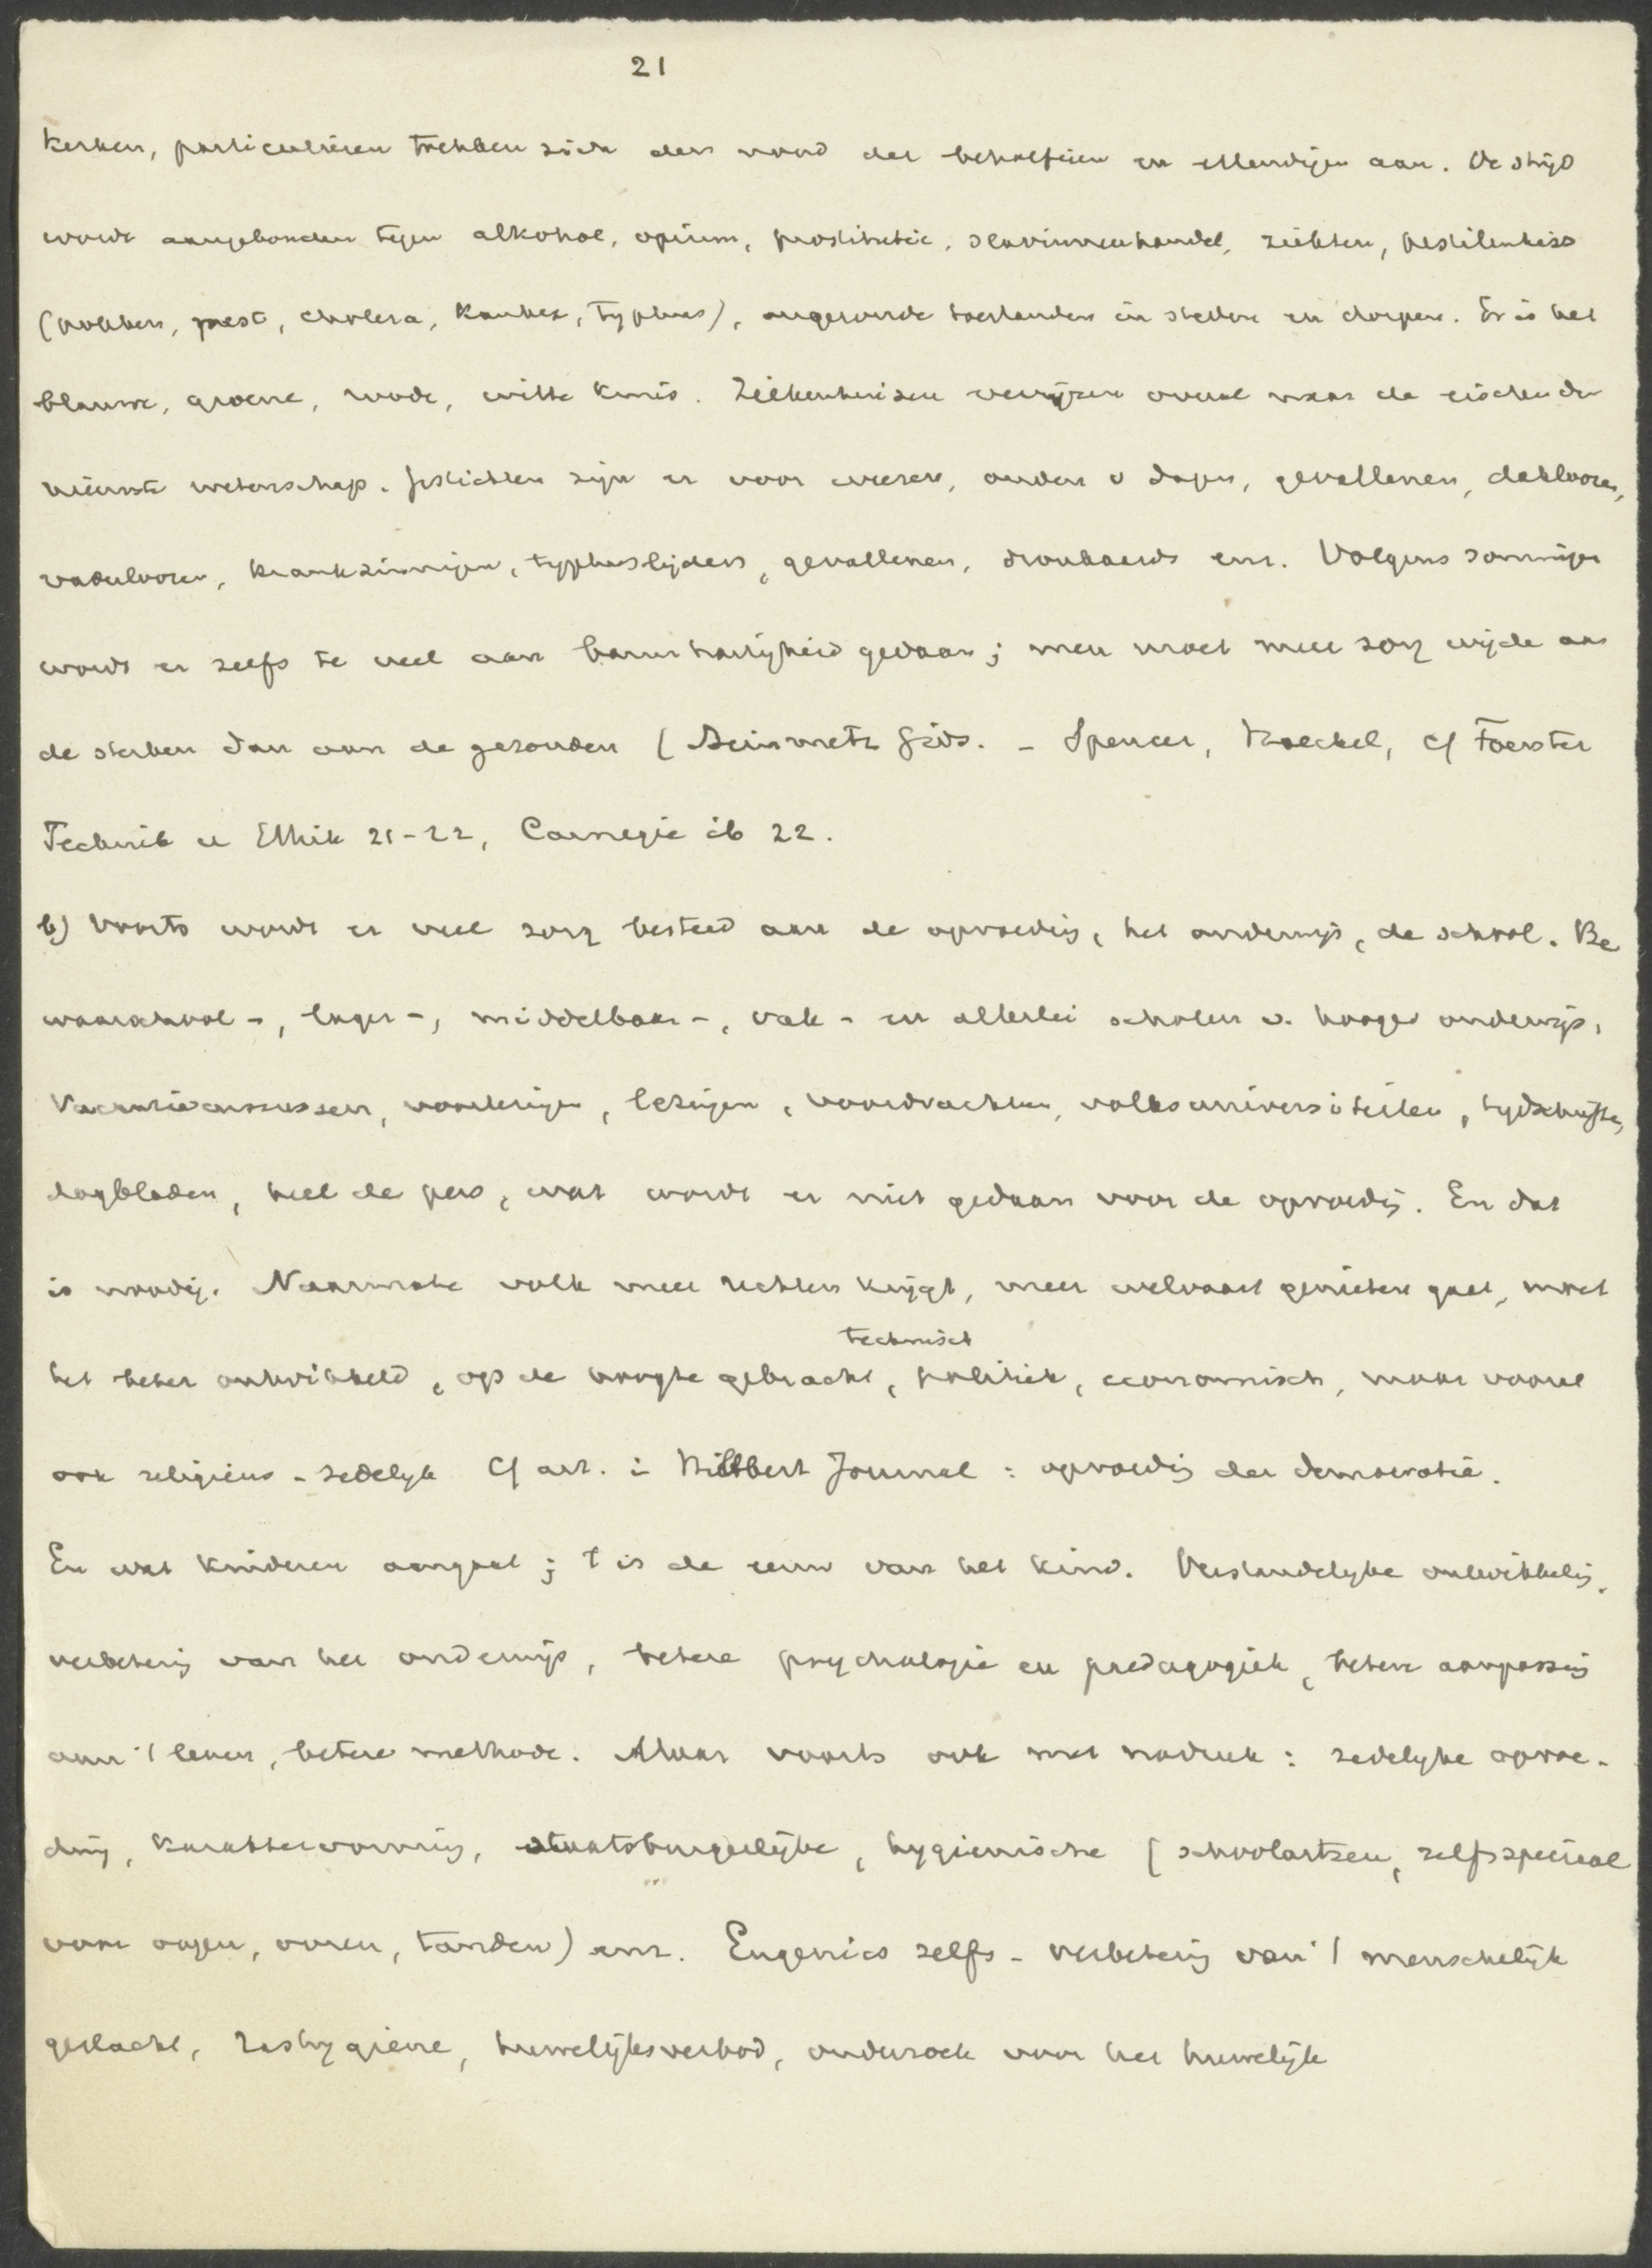 21
kerken, particulieren trekken zich den nood der behoeftigen en ellendigen aan. De strijd
wordt aangebonden tegen alkohol, opium, prostitutie, slavinnenhandel, ziekten, pestilentiën
(pokken, pest, cholera, kanker, typhus), ongezonde toestanden in steden en dorpen. Er is het
blauwe, groene, roode, witte kruis. Ziekenhuizen verrijzen overal naar de eischen der
nieuwste wetenschap. Gestichten zijn er voor weezen, ouden v dagen, gevallenen, dakloozen,
voedelloozen, krankzinnigen, typhuslijders, gevallenen, dronkaards enz. Volgens sommigen
wordt er zelfs te veel aan barmhartigheid gedaan; men moet meer zorg wijde aan
de sterken dan aan de gezonden (Steinmetz Gids. - Spencer, Haeckel, cf Foerster
Technik u Ethik 21-22, Carnegie ib 22.
b) Voorts wordt er veel zorg besteed aan de opvoedig, het onderwijs, de school. Be
waarschool-, lager-, middelbaar-, vak- en allerlei scholen v. hooger onderwijs,
Vacantiecursussen, voorlezingen, lezingen, voordrachten, volksuniversiteiten, tydschriften,
dagbladen, heel de pers, wat wordt er niet gedaan voor de opvoedig. En dat
is noodig. Naarmate volk meer rechten krijgt, meer welvaart genieten gaat, moet
technisch
het beter ontwikkeld, op de hoogte gebracht, politiek, economisch, maar vooral
ook religieus-zedelyk cf art. i Hibbert Journal: opvoedig der democratie.
En wat kinderen aangaat; t is de eeuw van het kind. Verstandelyke ontwikkelig,
verbeterig van het onderwijs, betere psychologie en paedagogiek, betere aanpassig
aan 't leven, betere methode. Maar voorts ook met nadruk: zedelyke opvoe-
ding, karaktervorming, staatsburgerlijke, hygienische (schoolartsen, zelfs speciaal
voor oogen, ooren, tanden) enz. Eugenics zelfs - verbeterig van 't menschelijk
geslacht, rashygiene, huwelijksverbod, onderzoek voor het huwelijk